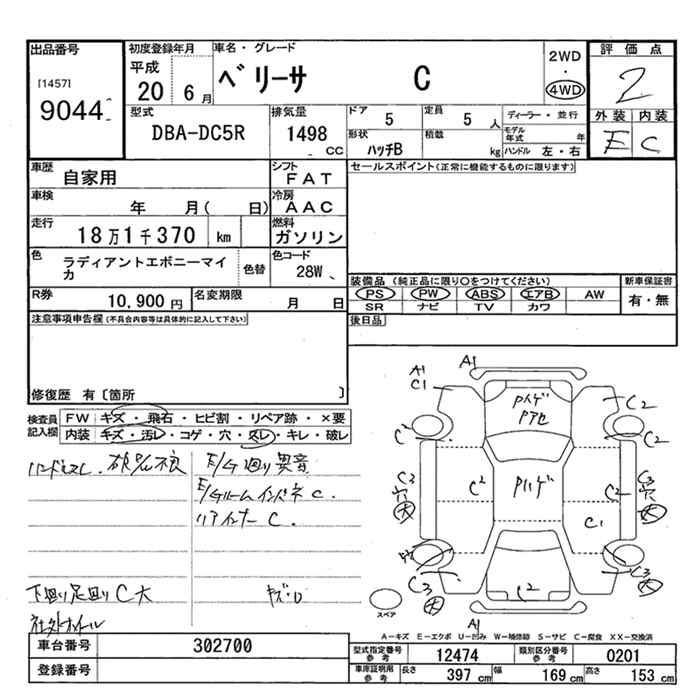 出品番号 初度登録年月 車名・グレード 評価点
[1457] 平成 2WD
9044 20 6月 ベリーサ C ・ 2
4WD
型式 排気量 ドア 定員 ディーラー・並行 外装 内装
DBA-DC5R 1498 CC 5 5人 モデル年式 年 E C
形状 積載
ハッチB kg ハンドル 左・右
車歴 自家用 シフト FAT セールスポイント(正常に機能するものに限ります)
車検 年 月( 日) 冷房 AAC
走行 18万1千370 km 燃料 ガソリン
色 ラディアントエボニーマイカ 色替 色コード 28W
装備品(純正品に限り○をつけてください) 新車保証書
PS PW ABS エアB AW 有・無
SR ナビ TV カワ
R券 10,900円 名変期限 月 日
後日品
注意事項申告欄(不具合内容等は具体的に記入して下さい)
修復歴 有〔箇所 〕
検査員記入欄 FW キズ・飛石・ヒビ割・リペア跡・×要
内装 キズ・汚レ・コゲ・穴・スレ・キレ・破レ
E/G廻り異音
E/Gルームインドネ C.
リアインナー C.
下廻り足廻り C大
社外ホイール
A1
A1
C1
Pハゲ
Pアセ
C2
C2
C2
C2
Pハゲ
C2
C3
穴
大
C2
C3
穴
大
C1
C3
大
C2
C3
大
A1
スペア
A-キズ E-エクボ U-凹み W-補修跡 S-サビ C-腐食 XX-交換済
車台番号 302700
登録番号
型式指定番号 参考 12474 類別区分番号 参考 0201
車庫証明用 参考 長さ 397 cm 幅 169 cm 高さ 153 cm